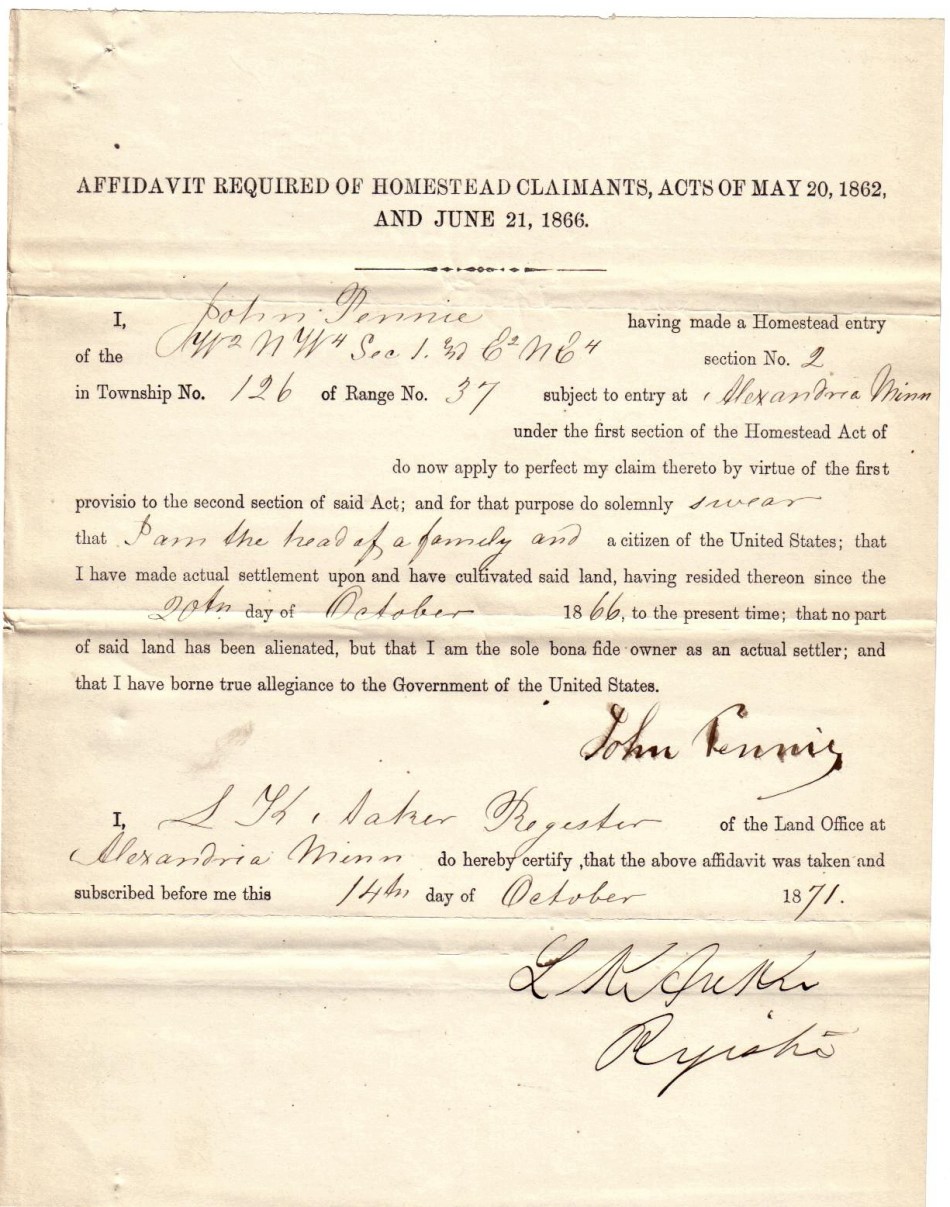 AFFIDAVIT REQUIRED OF HOMESTEAD CLAIMANTS, ACTS OF MAY 20, 1862,
AND JUNE 21, 1866.
I, John Pennie having made a Homestead entry
of the W2 N W4 Sec 1. & E2 N E4 section No. 2
in Township No. 126 of Range No. 37 subject to entry at Alexandria Minn
under the first section of the Homestead Act of
do now apply to perfect my claim thereto by virtue of the first
provisio to the second section of said Act; and for that purpose do solemnly swear
that I am the head of a family and a citizen of the United States; that
I have made actual settlement upon and have cultivated said land, having resided thereon since the
20th day of October 1866, to the present time; that no part
of said land has been alienated, but that I am the sole bona fide owner as an actual settler; and
that I have borne true allegiance to the Government of the United States.
John Pennie
I, L K Aaker Regester of the Land Office at
Alexandria Minn do hereby certify ,that the above affidavit was taken and
subscribed before me this 14th day of October 1871.
L K Aaker
Register